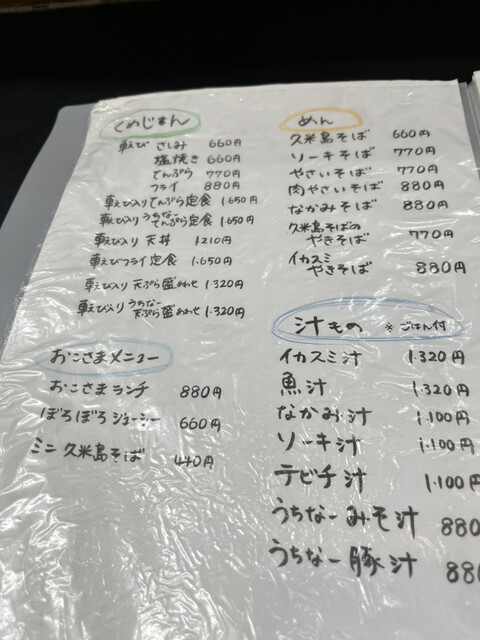 くめじまん
車えび さしみ 660円
塩焼き 660円
てんぷら 770円
フライ 880円
車えび入りてんぷら定食 1.650円
車えび入りうちなーてんぷら定食 1.650円
車えび入り 天丼 1.210円
車えびフライ定食 1.650円
車えび入り 天ぷら盛あわせ 1.320円
車えび入り うちなー天ぷら盛あわせ 1.320円
おこさまメニュー
おこさまランチ 880円
ぼろぼろジューシー 660円
ミニ 久米島そば 440円
めん
久米島そば 660円
ソーキそば 770円
やさいそば 770円
肉やさいそば 880円
なかみそば 880円
久米島そばの
やきそば 770円
イカスミ
やきそば 880円
汁もの ※ごはん付
イカスミ汁 1.320円
魚汁 1.320円
なかみ汁 1.100円
ソーキ汁 1.100円
テビチ汁 1.100円
うちなーみそ汁 880
うちなー豚汁 880